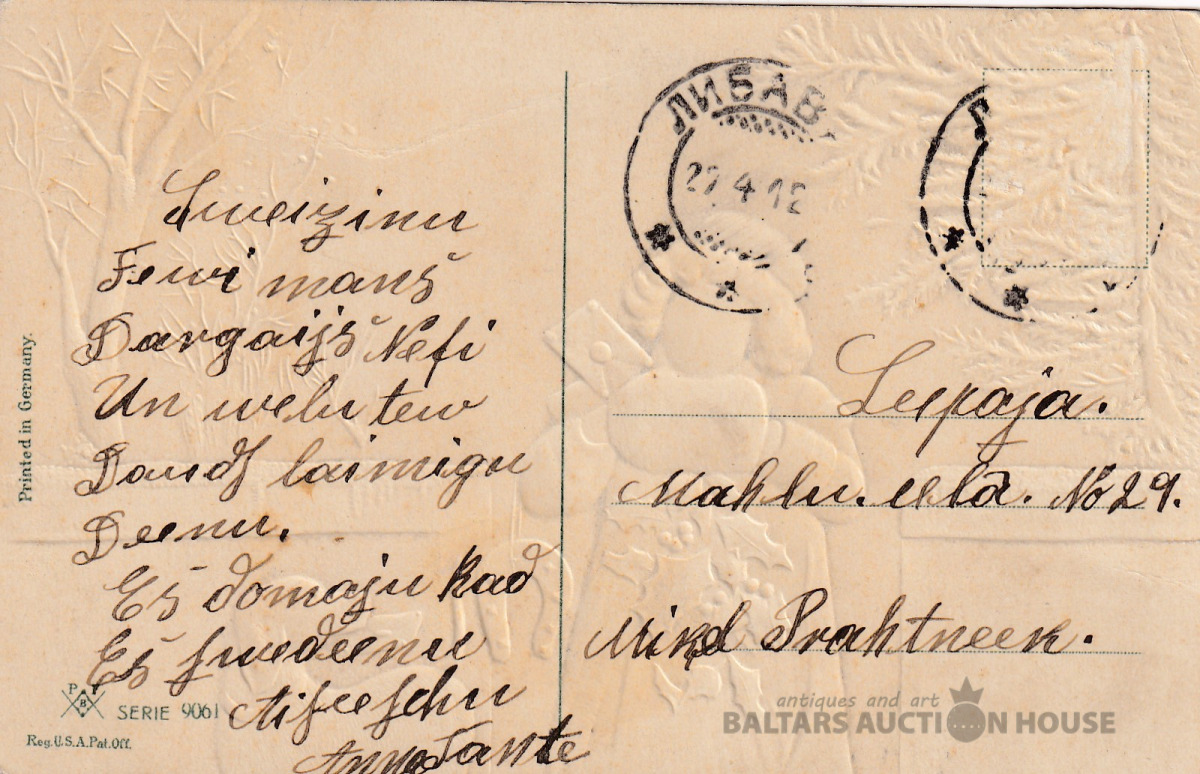 ЛИБАВ
27 4 12
Sweizinu
Tewi manš
Dargaijš Nefi
Un welu tew
Daudf laimigu
Deenu.
Eš domaju kad
Eš fwedeenu
Aifeefchu
Tante
Leepaja.
Mahlu. eela. No 29.
Prahtneek.
Printed in Germany.
P F B
SERIE 9061
Reg. U.S.A. Pat. Off.
antiques and art
BALTARS AUCTION HOUSE